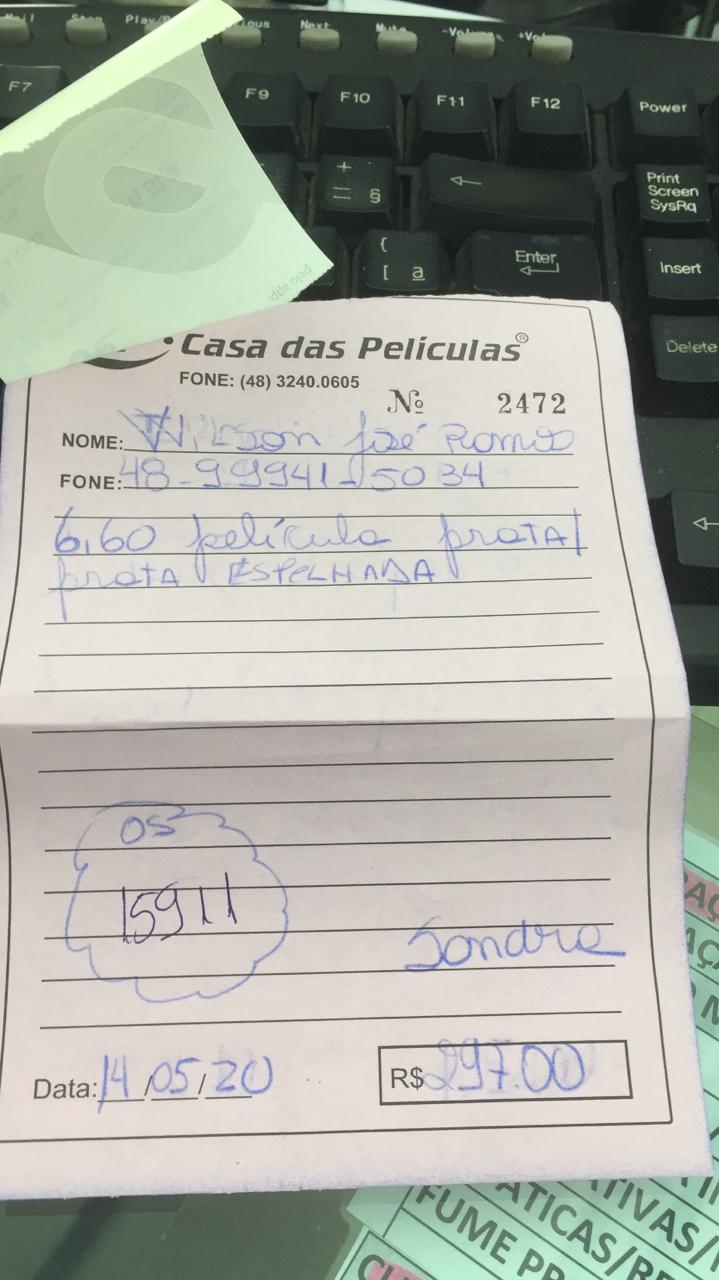 Play/P
Next
Mute
-Volume
+Vol
F7
F9
F10
F11
F12
Power
+
= §
←
Print
Screen
SysRq
{
[ ª
Enter
Insert
Delete
e
pelo app.
Casa das Películas®
FONE: (48) 3240.0605
Nº 2472
NOME: Wilson José
FONE: 48-99941-5034
6,60 película prata/
prata ESPELHADA
OS
15911
Sandra
Data: 14/05/20
R$ 297.00
FUME PR